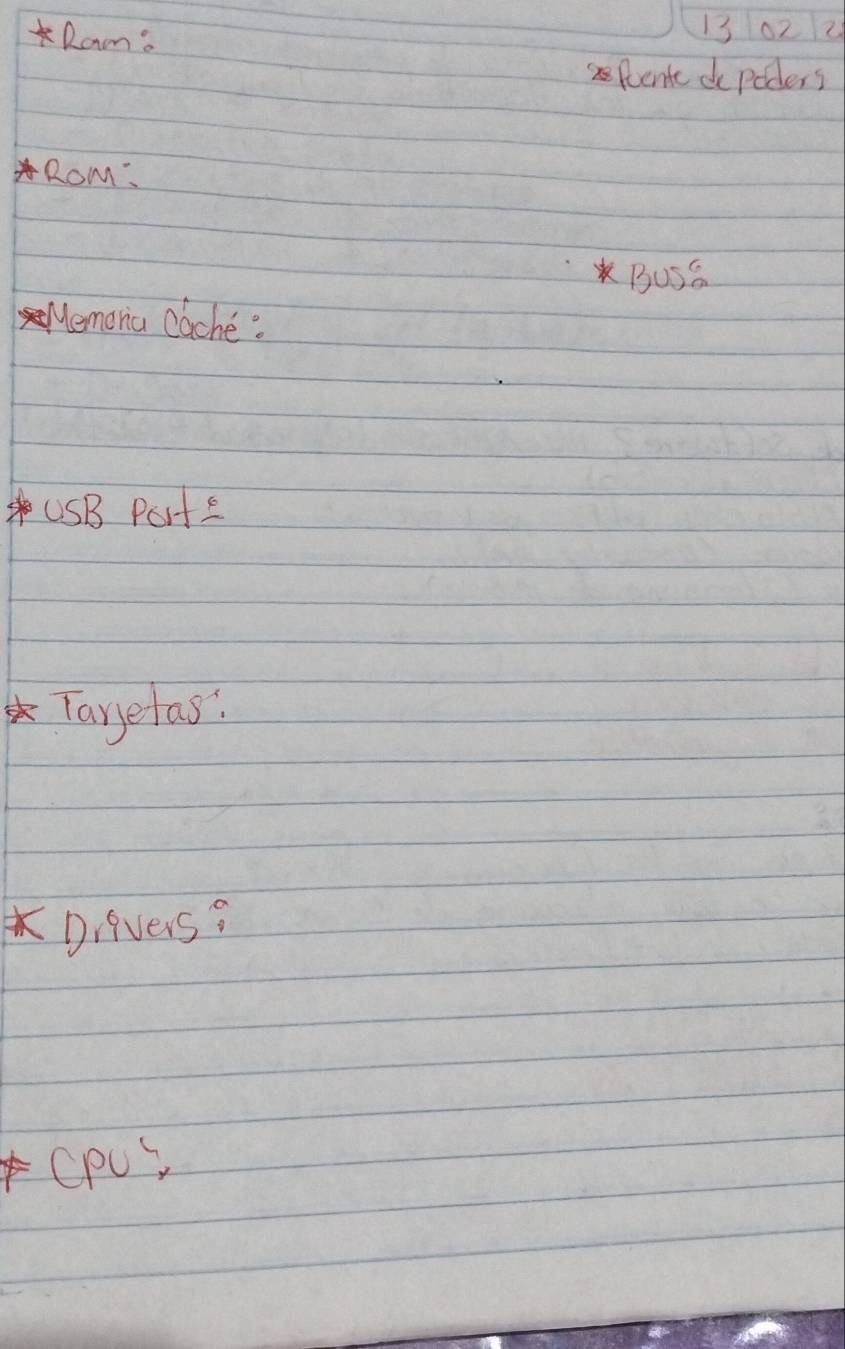 13 02 2
*Ram:
*Fuente de poder:
*ROM:
*BUS:
*Memoria Caché:
*USB Port:
*Tarjetas:
*Drivers:
*CPU: